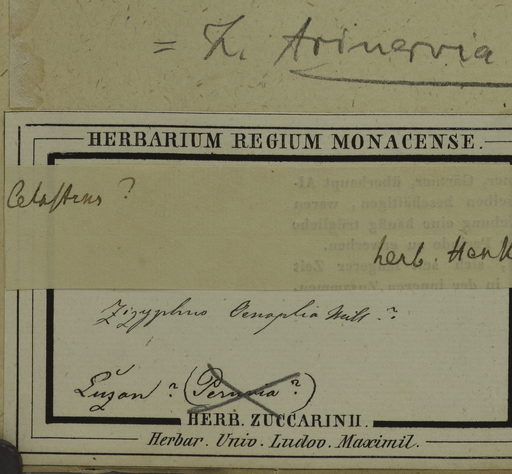 = Z. trinervia
HERBARIUM REGIUM MONACENSE.
Celastrus ?
herb. Henk
Zizyphus Oenoplia Willd. ?
Luzon ? (Peruvia ?)
HERB. ZUCCARINII.
Herbar. Univ. Ludov. Maximil.